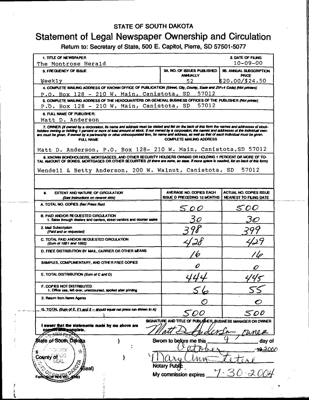 STATE OF SOUTH DAKOTA
Statement of Legal Newspaper Ownership and Circulation
Return to: Secretary of State, 500 E. Capitol, Pierre, SD 57501-5077
1. TITLE OF NEWSPAPER
The Montrose Herald
2. DATE OF FILING
10-09-00
3. FREQUENCY OF ISSUE
Weekly
3A. NO. OF ISSUES PUBLISHED ANNUALLY
52
3B. ANNUAL SUBSCRIPTION PRICE
$20.00/$24.50
4. COMPLETE MAILING ADDRESS OF KNOWN OFFICE OF PUBLICATION (Street, City, County, State and ZIP+4 Code) (Not printers)
P.O. Box 128 - 210 W. Main, Canistota, SD 57012
5. COMPLETE MAILING ADDRESS OF THE HEADQUARTERS OR GENERAL BUSINESS OFFICES OF THE PUBLISHER (Not printer)
P.O. Box 128 - 210 W. Main, Canistota, SD 57012
6. FULL NAME OF PUBLISHER:
Matt D. Anderson
7. OWNER (If owned by a corporation, its name and address must be stated and
FULL NAME
COMPLETE MAILING ADDRESS
Matt D. Anderson, P.O. Box 128- 210 W. Main, Canistota,SD 57012
8. KNOWN BONDHOLDERS, MORTGAGEES, AND OTHER SECURITY HOLDERS OWNING OR HOLDING 1 PERCENT OR MORE OF TOTAL AMOUNT OF BONDS, MORTGAGES OR OTHER SECURITIES
Wendell & Betty Anderson, 200 W. Walnut, Canistota, SD 57012
9. EXTENT AND NATURE OF CIRCULATION
(See instructions on reverse side)
AVERAGE NO. COPIES EACH ISSUE DURING PRECEDING 12 MONTHS
ACTUAL NO. COPIES ISSUE NEAREST TO FILING DATE
A. TOTAL NO. COPIES (Net Press Run)
500 500
B. PAID AND/OR REQUESTED CIRCULATION
1. Sales through dealers and carriers, street vendors and counter sales
30 30
2. Mail Subscription
(Paid and or requested)
398 399
C. TOTAL PAID AND/OR REQUESTED CIRCULATION
(Sum of 10B1 and 10B2)
428 429
D. FREE DISTRIBUTION BY MAIL, CARRIER OR OTHER MEANS
16 16
SAMPLES, COMPLIMENTARY, AND OTHER FREE COPIES
0 0
E. TOTAL DISTRIBUTION (Sum of C and D)
444 445
F. COPIES NOT DISTRIBUTED
1. Office use, left over, unaccounted, spoiled after printing
56 55
2. Return from News Agents
0 0
G. TOTAL (Sum of E, F1 and 2 - should equal net press run shown in A)
500 500
I swear that the statements made by me above are correct and complete.
SIGNATURE AND TITLE OF PUBLISHER, BUSINESS MANAGER OR OWNER
Matt D. Anderson, owner
State of South Dakota )
County of )
(Seal)
Sworn to before me this 9 day of
October 2000
Mary Ann
Notary Public
My commission expires 7-30-2004